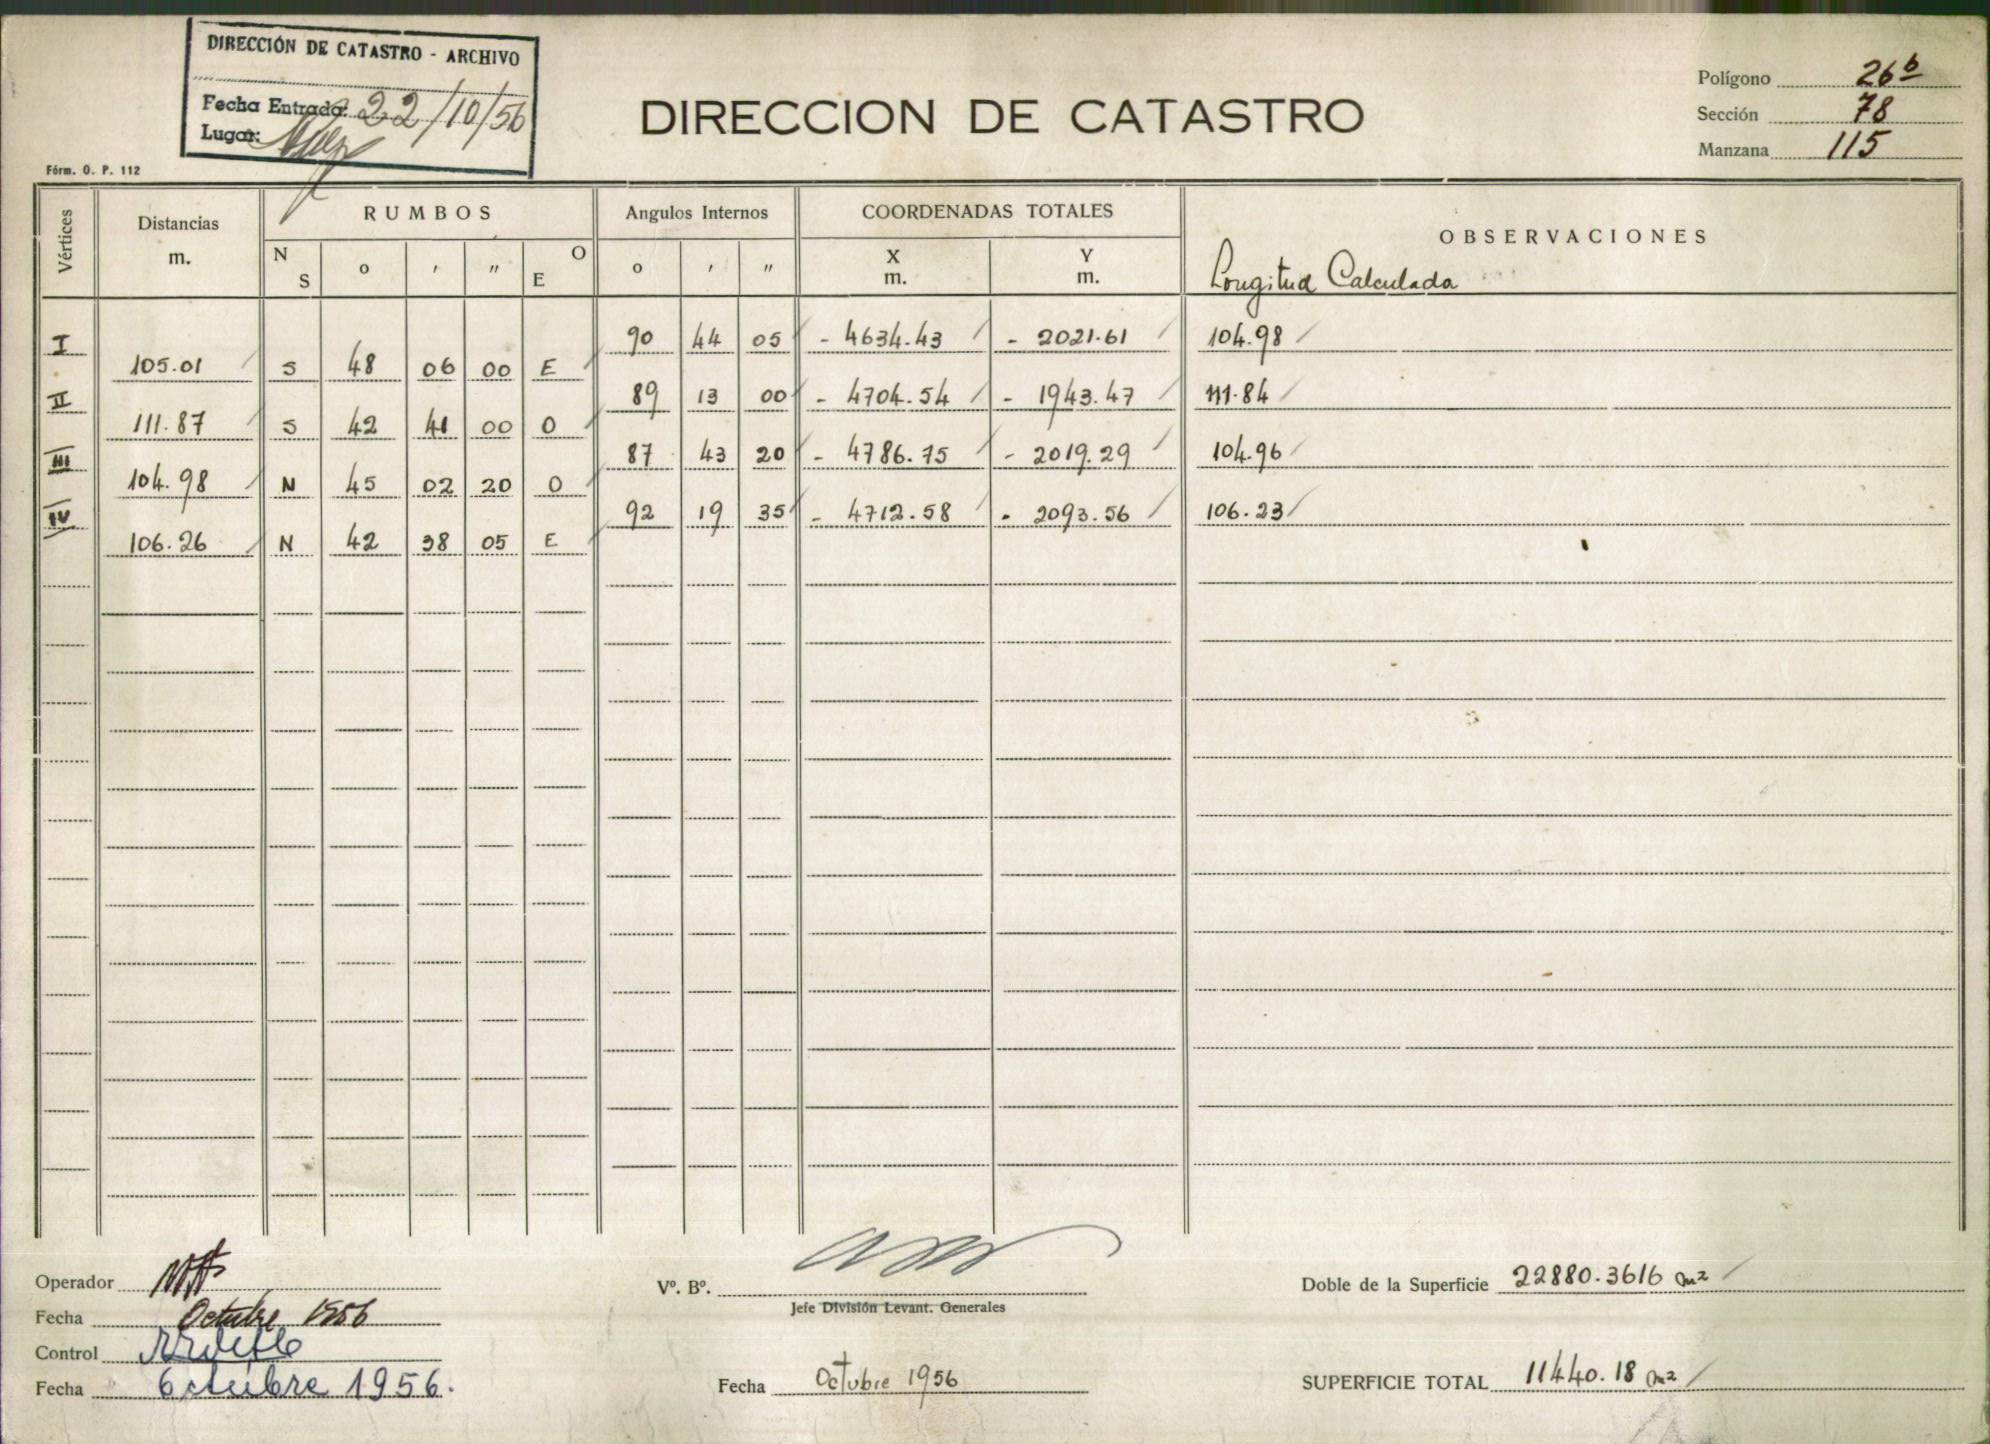 DIRECCIÓN DE CATASTRO - ARCHIVO
Fecha Entrada: 22/10/56
Lugar:
Fórm. O. P. 112
DIRECCION DE CATASTRO
Polígono 26 b
Sección 78
Manzana 115
Vértices Distancias m. RUMBOS Angulos Internos COORDENADAS TOTALES OBSERVACIONES
N S o ′ ″ O E o ′ ″ X m. Y m. Longitud Calculada
I 90 44 05 - 4634.43 - 2021.61 104.98
105.01 S 48 06 00 E
II 89 13 00 - 4704.54 - 1943.47 111.84
111.87 S 42 41 00 O
III 87 43 20 - 4786.75 - 2019.29 104.96
104.98 N 45 02 20 O
IV 92 19 35 - 4712.58 - 2093.56 106.23
106.26 N 42 38 05 E
Operador
Fecha Octubre 1956
Control
Fecha Octubre 1956.
Vº. Bº.
Jefe División Levant. Generales
Fecha Octubre 1956
Doble de la Superficie 22880.3616 m2
SUPERFICIE TOTAL 11440.18 m2